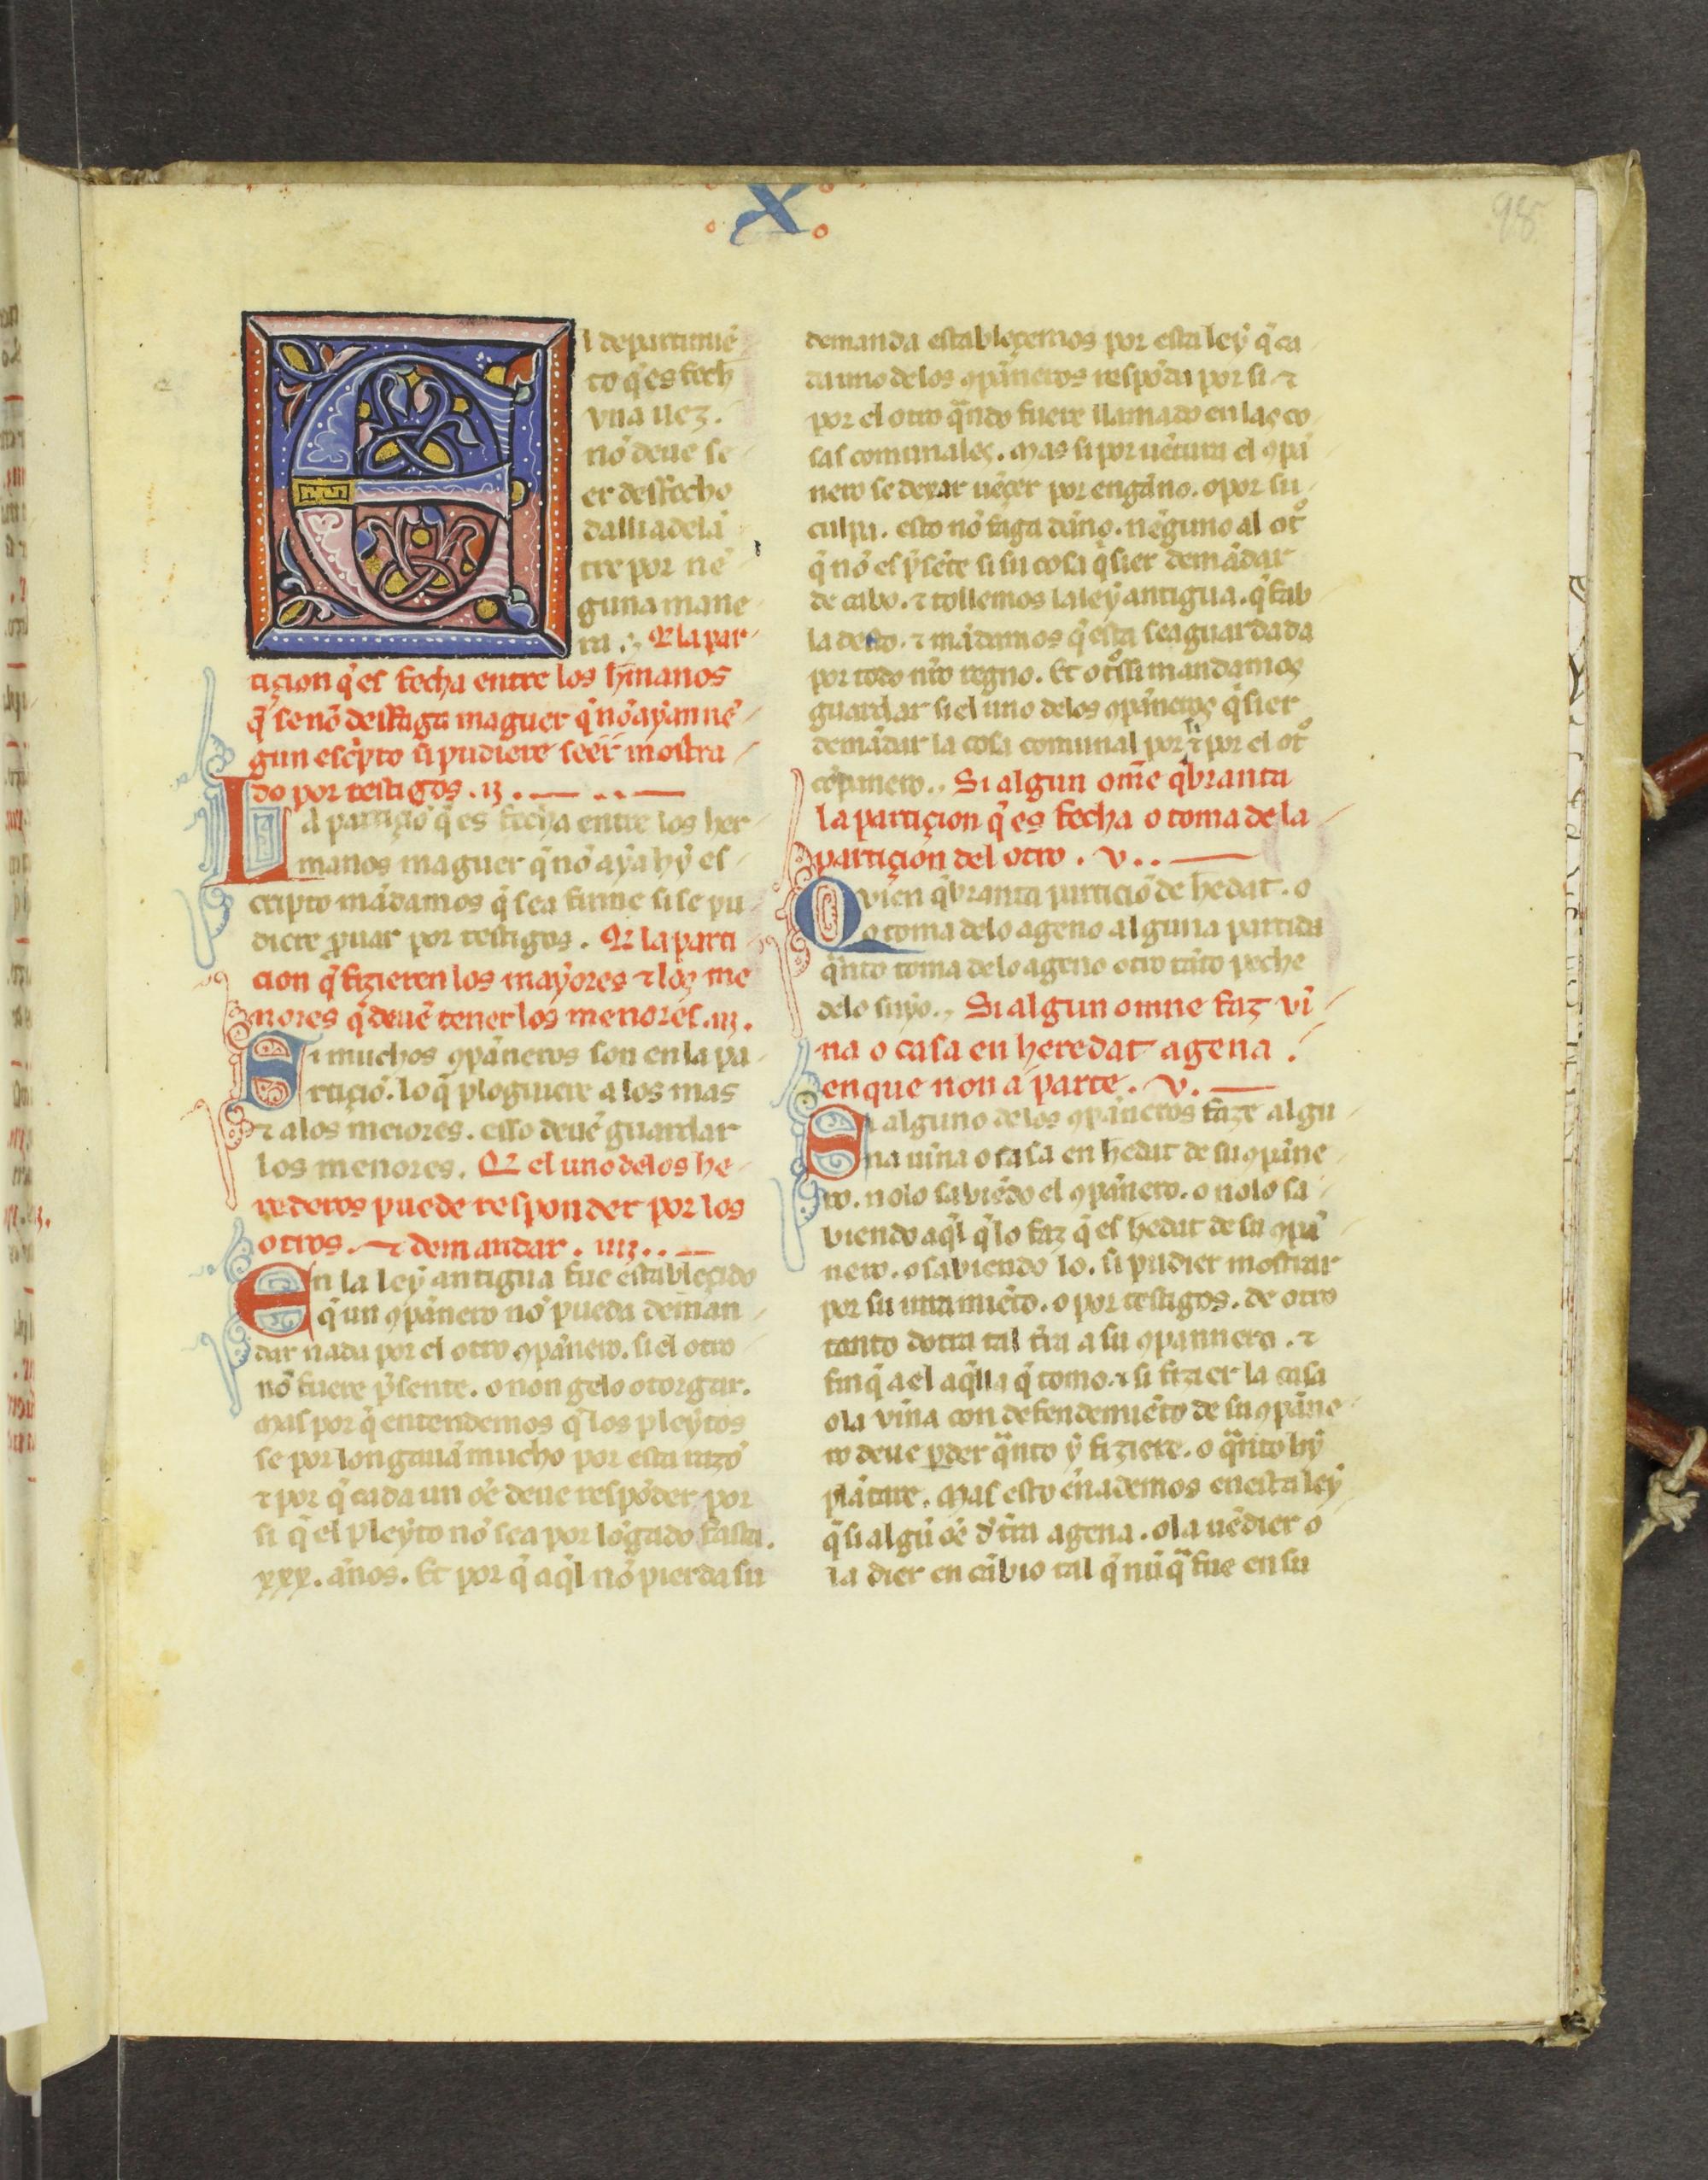 X
98
El departimiẽ
to q̃ es fech
vna uez.
nõ deue se
er desfecho
dalli adelã
tre por nẽ
guna mane
ra. Q̃ la par
tiçion q̃ es fecha entre los hm̃anos
q̃ se nõ desfaga maguer q̃ nõ ayan nẽ
gun esc̃pto si pudiere seer mostra
do por testigos. ij.
La partiçiõ q̃ es fecha entre los her
manos maguer q̃ nõ aya hy es
cripto mãdamos q̃ sea firme si se pu
diere ꝓuar por testigos. Q̃ la parti
cion q̃ fizieren los mayores ⁊ los me
nores q̃ deuẽ tener los menores. iij.
Si muchos ꝯpãneros son en la pa
rtiçiõ. lo q̃ ploguiere a los mas
⁊ a los meiores. esso deuẽ guardar
los menores. Q̃ el uno de los he
rederos puede responder por los
otros. ⁊ demandar. iiij.
En la ley antigua fue estableçido
q̃ un ꝯpãnero nõ pueda deman
dar nada por el otro ꝯpãnero. si el otro
nõ fuere p̃sente. o non gelo otorgar.
Mas por q̃ entendemos q̃ los pleytos
se por longauã mucho por esta razõ
⁊ por q̃ cada un oẽ deue respõder por
si q̃ el pleyto nõ sea por lõgado fasta.
xxx. ãnos. Et por q̃ aq̃l nõ pierda su
demanda estableçemos por esta ley q̃ ca
da uno de los ꝯpãneros respõda por si ⁊
por el otro q̃ndo fuere llamado en las co
sas comunales. Mas si por uẽtura el ꝯpã
nero se dexar uẽçer por engãno. o por su
culpa. esto nõ faga dãno. nẽguno al ot̊
q̃ nõ es p̃sẽte si su cosa q̃sier demãdar
de cabo. ⁊ tollemos la ley antigua. q̃ fab
la desto. ⁊ mãdamos q̃ esta sea guardada
por todo nr̃o regno. Et ot̊ssi mandamos
guardar si el uno delos ꝯpãneros q̃sier
demãdar la cosa comunal por si ⁊ por el ot̊
cõpãnero. Si algun om̃e q̃branta
la partiçion q̃ es fecha o toma de la
partiçion del otro. v.
Quien q̃branta particiõ de hẽdat. o
o toma delo ageno alguna partida
q̃nto toma delo ageno otro tãto peche
delo suyo. Si algun omne faz vĩ
na o casa en heredat agena.
en que non a parte. v.
Si alguno de los ꝯpãneros faze algu
na uĩna o casa en hẽdat de su ꝯpãne
ro. nolo sabiẽdo el ꝯpãnero. o nolo sa
viendo aq̃l q̃ lo faz q̃ es hẽdat de su ꝯpã
nero. o sabiendo lo. si pudier mostrar
por su iuramiẽto. o por testigos. de otro
tanto dotra tal tr̃a a su ꝯpannero. ⁊
finq̃ a el aq̃lla q̃ tomo. ⁊ si fizier la casa
o la viña con defendemiẽto de su ꝯpãne
ro deue ꝑder q̃nto y fiziere. o q̃nto hy
plãtare. Mas esto ẽnademos en esta ley
q̃ si algũ oẽ d'tr̃a agena. o la uẽdier o
la dier en cãbio tal q̃ nũq̃ fue en su